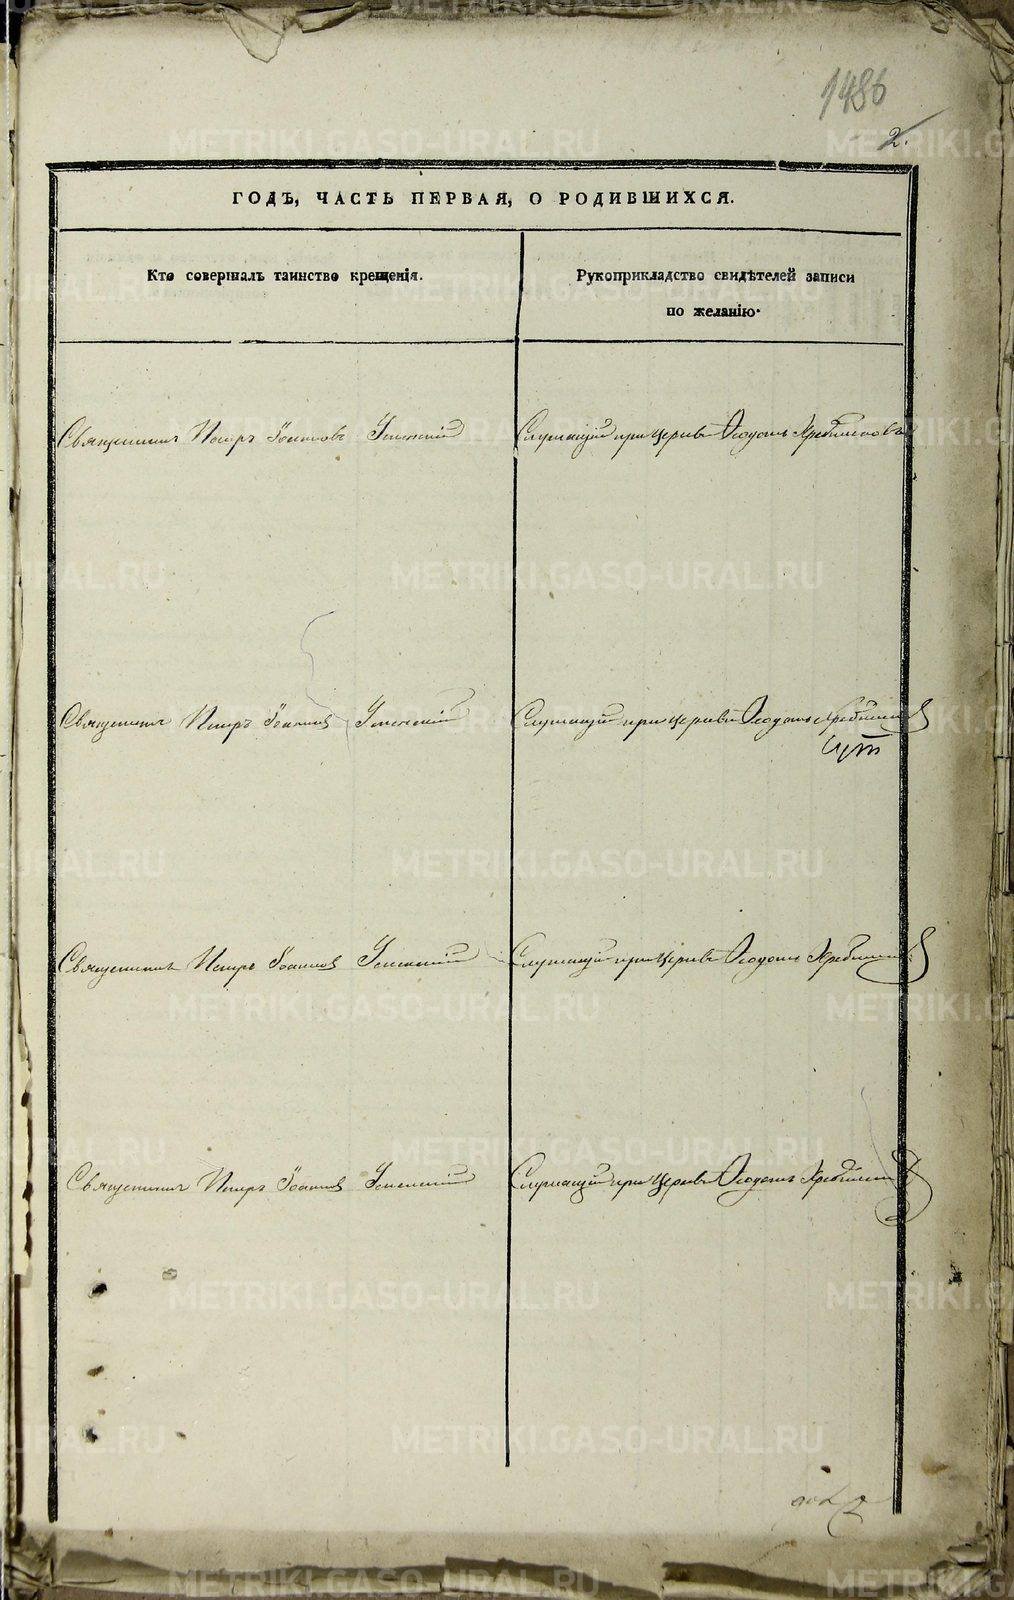 1486
2.
ГОДЪ, ЧАСТЬ ПЕРВАЯ, О РОДИВШИХСЯ.
Кто совершалъ таинство крещенія.
Рукоприкладство свидѣтелей записи
по желанію.
Священникъ Петръ Іоанновъ Успенскій
Служащій при церкви Ѳеодотъ
Священникъ Петръ Іоанновъ Успенскій
Служащій при церкви Ѳеодотъ
Священникъ Петръ Іоанновъ Успенскій
Служащій при церкви Ѳеодотъ
Священникъ Петръ Іоанновъ Успенскій
Служащій при церкви Ѳеодотъ
METRIKI.GASO-URAL.RU